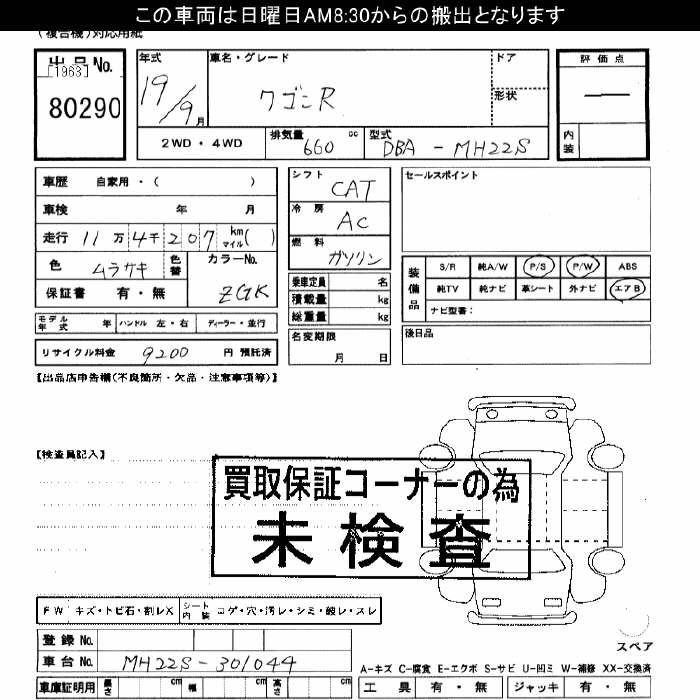 この車両は日曜日AM8:30からの搬出となります
(複合機)対応用紙
出品No.
[1963]
80290
年式
19/9月
車名・グレード
ワゴンR
ドア
形状
2WD・4WD
排気量 660 cc
型式 DBA - MH22S
評価点
内装
車歴 自家用・( )
車検 年 月
走行 11万4千207 km マイル( )
色 ムラサキ 色替 カラーNo.
保証書 有・無 ZGK
モデル年式 年 ハンドル 左・右 ディーラー・並行
リサイクル料金 9200 円 預託済
シフト CAT
冷房 AC
燃料 ガソリン
乗車定員 名
積載量 kg
総重量 kg
名変期限
月 日
セールスポイント
装備品
S/R 純A/W P/S P/W ABS
純TV 純ナビ 革シート 外ナビ エアB
ナビ型番:
後日品
【出品店申告欄(不良箇所・欠品・注意事項等)】
【検査員記入】
買取保証コーナーの為
未検査
FW キズ・トビ石・割レX シート内装 コゲ・穴・汚レ・シミ・破レ・スレ
登録No.
車台No. MH22S-301044
車庫証明用 長さ cm 幅 cm 高さ cm
スペア
A-キズ C-腐食 E-エクボ S-サビ U-凹ミ W-補修 XX-交換済
工具 有・無 ジャッキ 有・無